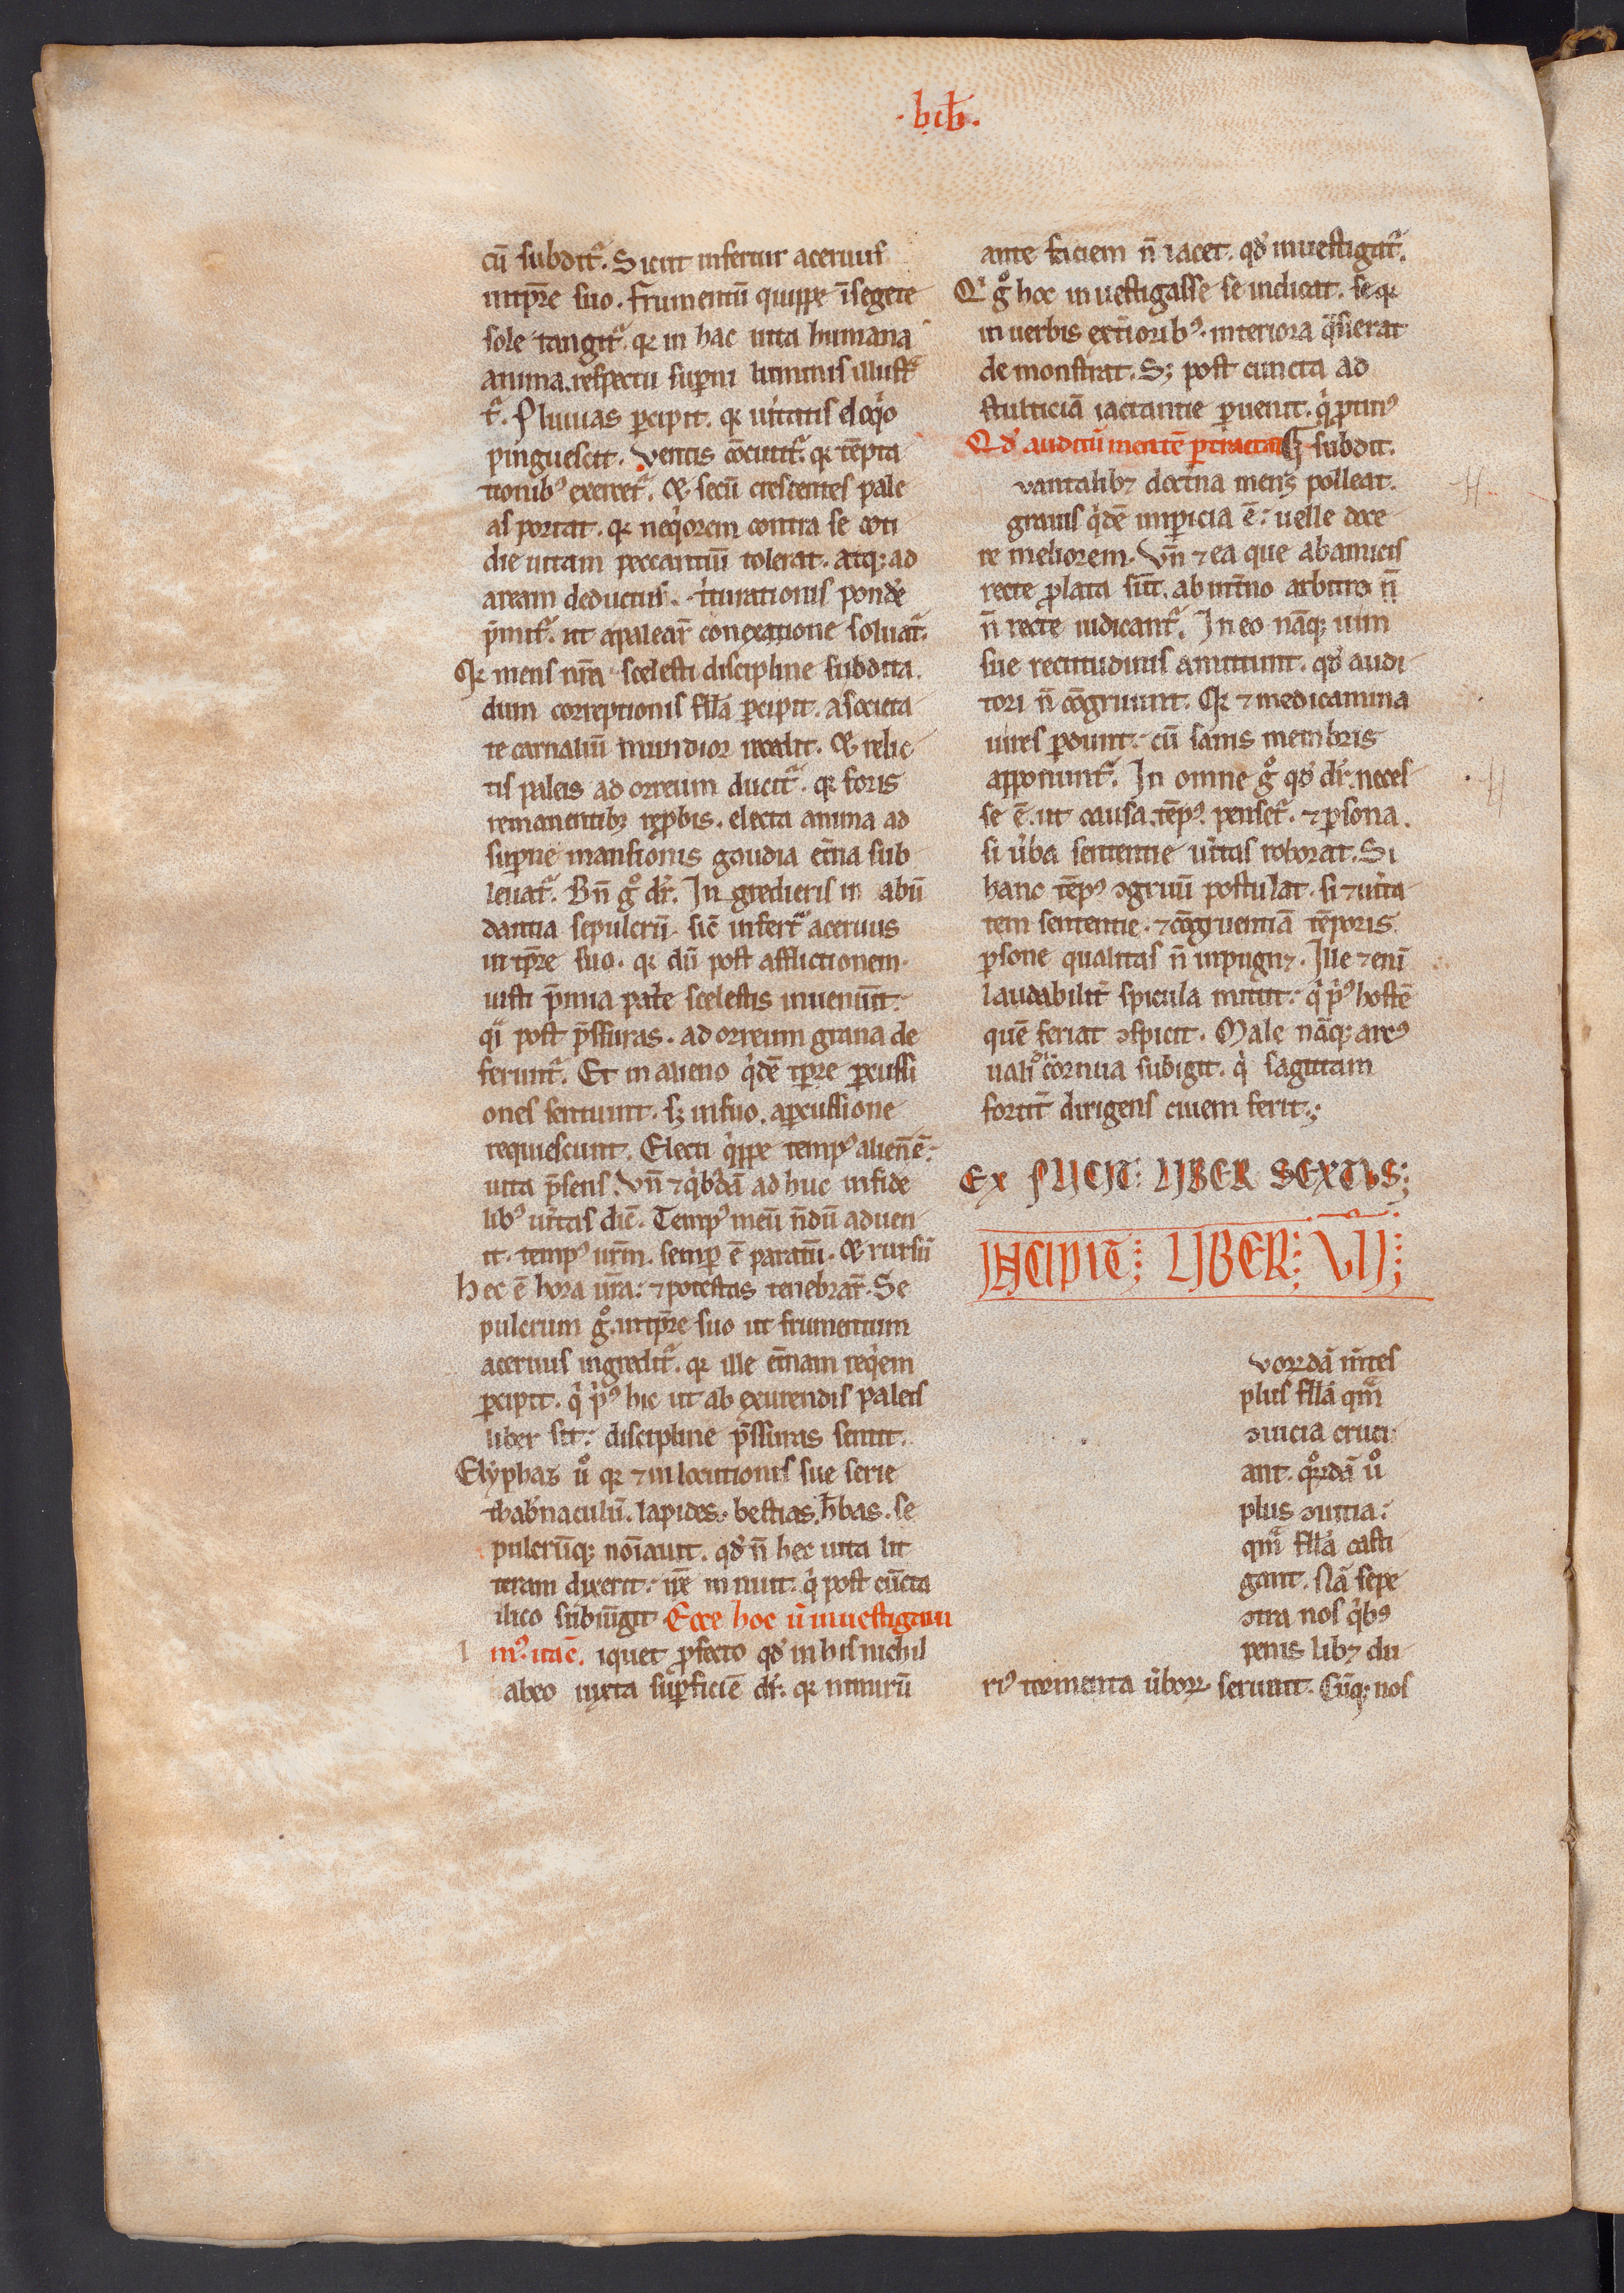 .lib.
cū subdit᷑. Sicut infertur aceruus
intp̄re suo. Frumentū quippe ī segete
sole tangit᷑. qr in hac uita humana
anima. respectu sup̄ni luminis illust̄
t᷑. Pluuias ꝑcipit. qr ūitatis eloq̇o
pinguescit. Ventis cōcutit᷑. qr tēpta
tionibꝰ exercet᷑. & secū crescentes pale
as portat. qr neq̇orem contra se coti
die uitam peccantiū tolerat. atq; ad
aream deductus. t̓iturationis pond̓e
p̄mit᷑. ut apalear̄ conexatione soluat᷑.
Qr mens nr̄a scelesti discipline subdita.
dum correptionis fllā ꝑcipit. a societa
te carnaliū mundior recedit. & relic
tis paleis ad orreum ducit᷑. qr foris
remanentibꝫ reꝓbis. electa anima ad
sup̄ne mansionis gaudia et̄na sub
leuat᷑. Bn̄ g̊ dr̄. Ingredieris in abū
dantia sepulcrū. sic̄ infert᷑ aceruus
in tp̄re suo. qr dū post afflictionem
iusti p̄mia pat̓e scelestis inueniūt.
q̓i post p̄ssuras. ad orreum grana de
ferunt᷑. Et in alieno q̇dē tp̄re ꝑcussi
ones sentiunt. sꝫ insuo. aꝑcussione
requiescunt. Electi q̇ppe tempꝰ alien̄ ē.
uita p̄sens. Vn̄ ⁊ q̇bꝰdā ad huc infide
libꝰ ūitas dic̄. Tempꝰ meū n̄dū aduen
it. tempꝰ ur̄m. semꝑ ē paratū. & rursū
hec ē hora ur̄a: ⁊ potestas tenebrar̄. Se
pulcrum g̊. intp̄re suo ut frumentum
aceruus ingredit᷑. qr ille et̄nam req̇em
ꝑcipit. q̇ p̓ꝰ hic ut ab exutendis paleis
liber sit: discipline p̄ssuras sentit.
Elyphas ů qr ⁊ in locutionis sue serie
thab̓naculū. lapides. bestias. h̄bas. se
pulcrūq; noīauit. qd̓ n̄ hec iuxta lit
teram dixerit: ip̄e innuit. q̇ post cūcta
ilico subiūgit Ecce hoc ū inuestigaui
mꝰ. ita ē. iquet ꝓfecto qd̓ in his nichil
abeo iuxta suꝑficiē dr̄: qr nimirū
ante faciem n̄ iacet. qd̓ inuestigat᷑.
Q̓ g̊ hoc inuestigasse se indicat. se qr
in uerbis ext̓ioribꝰ. interiora q̄sierat
demonstrat. Sꝫ post cuncta ad
stulticiā iactantie ꝑuenit. q̇ ꝓtinꝰ
Qd̓ auditū mentē ꝑtracta subdit.
vantalibꝫ doct̓na mens polleat.
grauis q̇dē inꝑicia ē: uelle doce
re meliorem. Vn̄ ⁊ ea que abamicis
recte ꝓlata sūt. ab int̄no arbitro n̄
n̄ recte iudicant᷑. In eo nāq; uim
sue rectitudinis amittunt. qd̓ audi
tori n̄ cōgruunt. Qr ⁊ medicamina
uires ꝑdunt: cū sanis membris
apponunt᷑. In omne g̊ qd̓ dr̄. neces
se ē. ut causa. tēpꝰ penset᷑. ⁊ ꝑsona.
si ūba sententie ūitas roborat. Si
hanc tēpꝰ ꝯgruū postulat. si ⁊ uīta
tem sententie. ⁊ cōgruentiā tēporis.
ꝑsone qualitas n̄ inpugnꝫ. Ille ⁊ enī
laudabilit᷑ spicula mittit: q̇ p̓ꝰ hostē
quē feriat ꝯspicit. Male nāq; arcꝰ
ualid̓ cornua subigit. q̇ sagittam
fortit᷑ dirigens ciuem ferit;
EXPLICIT: LIBER SEXTVS;
INCIPIT; LIBER; VII;
vorꝝdā m̄tes
plus fllā qm̄
ꝯuicia cruci
ant. quorꝝdā ů
plus ꝯuitia:
qm̄ fllā casti
gant. Nā sepe
ꝯtra nos q̇bꝰ
penis libꝫ du
riꝰ tormenta ūborꝝ seruiunt. Cūq; nos